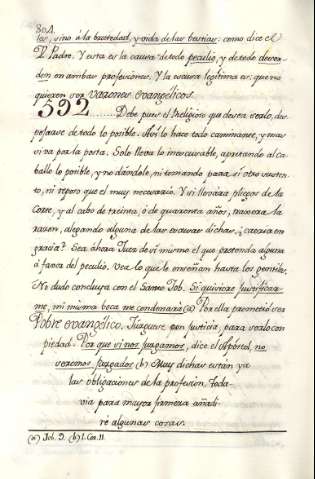 804.
les, sino à la brutedad, y vida de las bestias: como dice el
V. Padre. Y esta es la causa de todo peculio, y de todo desor-
den en ambas profesiones. Y la escusa legítima es: que no
quieren ser varones evangélicos.
592 Debe pues el Religioso que desea serlo, des-
pojarse de todo lo posible. Así lo hace todo caminante, y mas
si va por la posta. Solo lleva lo inescusable, apretando al ca-
ballo lo posible, y no dándole, ni tomando para sí otro susten-
to, ni reposo que el muy necesario. Y si llevára pliegos de la
Corte, y al cabo de treinta, ó de quarenta años, traxera la
razon, alegando alguna de las escusas dichas, ¿caeria en
gracia? Sea ahora Juez de sí mismo el que pretenda alguna
á favor del peculio. Vea lo que le enseñan hasta los gentiles.
No dudo concluya con el Santo Job. Si quisiere justificar-
me, mi misma boca me condenaria (a) Por ella prometió ser
Pobre evangélico. Júzguese con justicia, para serlo con
piedad. Por que si nos juzgamos, dice el Apóstol, no
seremos juzgados (b) Muy dichas estan ya
las obligaciones de la profesion. Toda-
via para mayor firmeza añadi-
re algunas cosas.
(a) Job. 9. (b) I. Cor. 11.